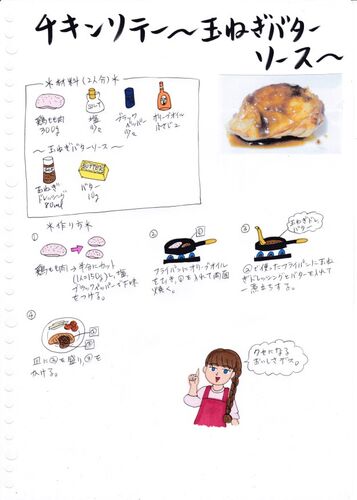 チキンソテー〜玉ねぎバター
ソース〜
＊材料(2人分)＊
鶏もも肉
300g
SALT
塩
少々
ブラック
ペッパー
少々
オリーブオイル
小さじ2
〜玉ねぎバターソース〜
玉ねぎ
ドレッシング
80ml
BUTTER
バター
10g
＊作り方＊
①
鶏もも肉→半分にカット
(1人150g)し、塩、
ブラックペッパーで下味
をつける。
②
①
フライパンにオリーブオイル
をひき、①を入れて両面
焼く。
③
玉ねぎドレ、
バター
②で使ったフライパンに玉ね
ぎドレッシングとバターを入れて
一煮立ちする。
④
③
②
皿に②を盛り、③を
かける。
クセになる
おいしさデス。